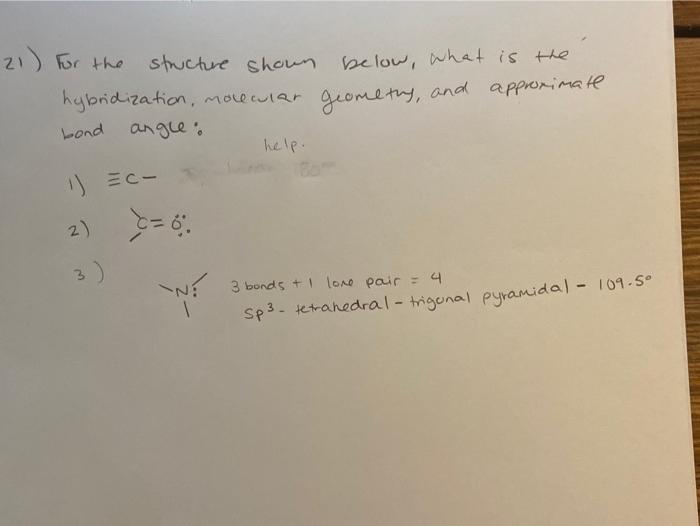 21) For the structure shown below, what is the
hybridization, molecular geometry, and approximate
bond angle:
help.
1) ≡C-
2) C=Ö:
3)
N: 3 bonds + 1 lone pair = 4
sp³ - tetrahedral - trigonal pyramidal - 109.5°